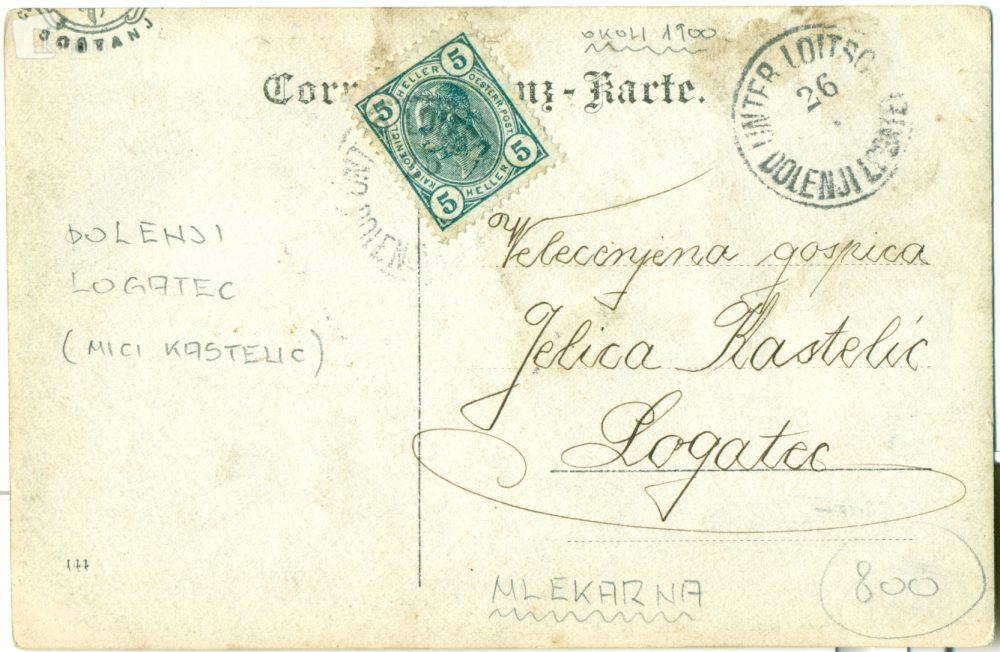 OKOLI 1900
Correspondenz-Karte.
5 HELLER 5
OESTERR. POST.
KAIS. KOENIGL.
5 HELLER 5
UNTER LOITSC
26
DOLENJI LOGATEC
UNT
DOLENJ
DOLENJI
LOGATEC
(MICI KASTELIC)
Velecenjena gospica
Jelica Kastelić
Logatec
MLEKARNA
800